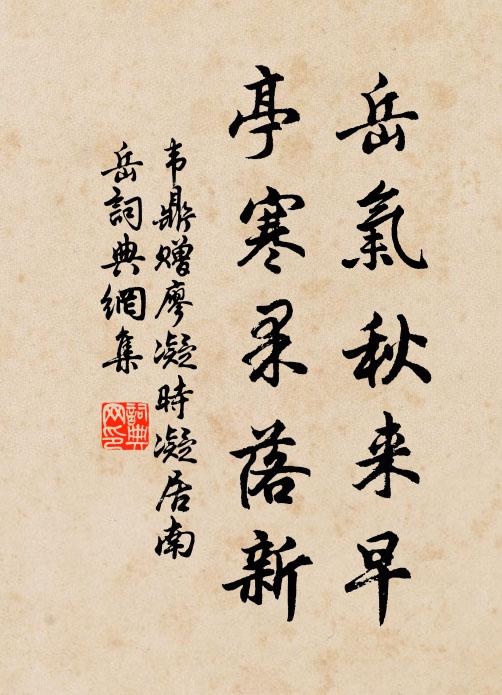 岳氣秋来早
亭寒果落新
韦鼎赠廖凝时凝居南
岳詞典網集
詞典网印